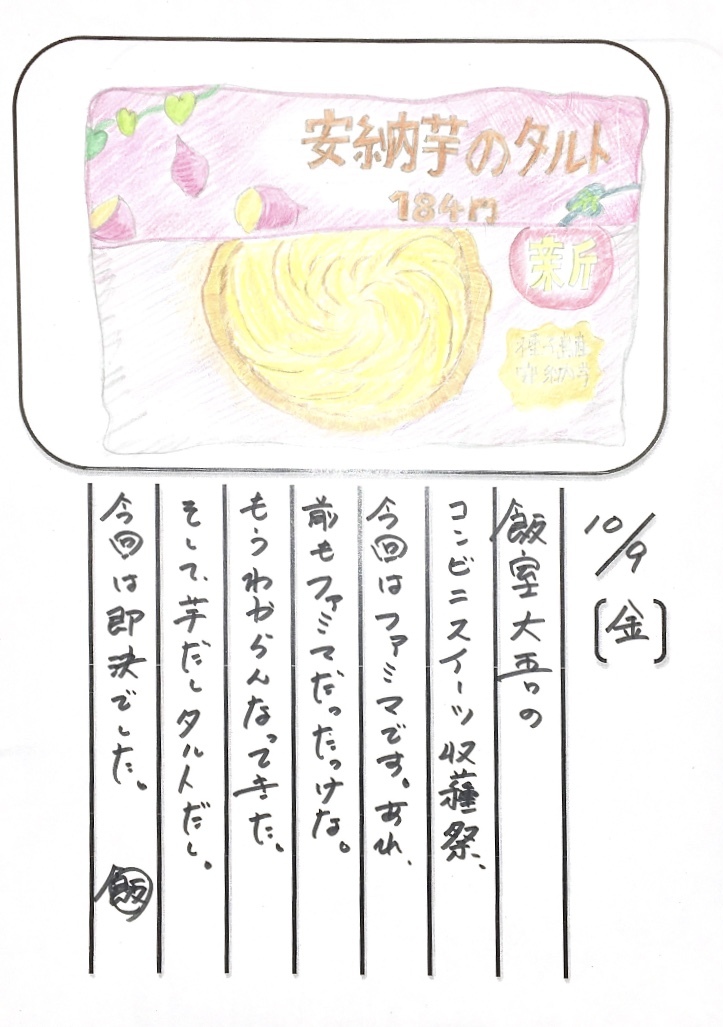 安納芋のタルト
184円
新
10/9
(金)
飯室大吾の
コンビニスイーツ収穫祭、
今回はファミマです。あれ、
前もファミマだったっけな。
もうわからんなってきた。
そして、芋だしタルトだし。
今回は即決でした。
飯